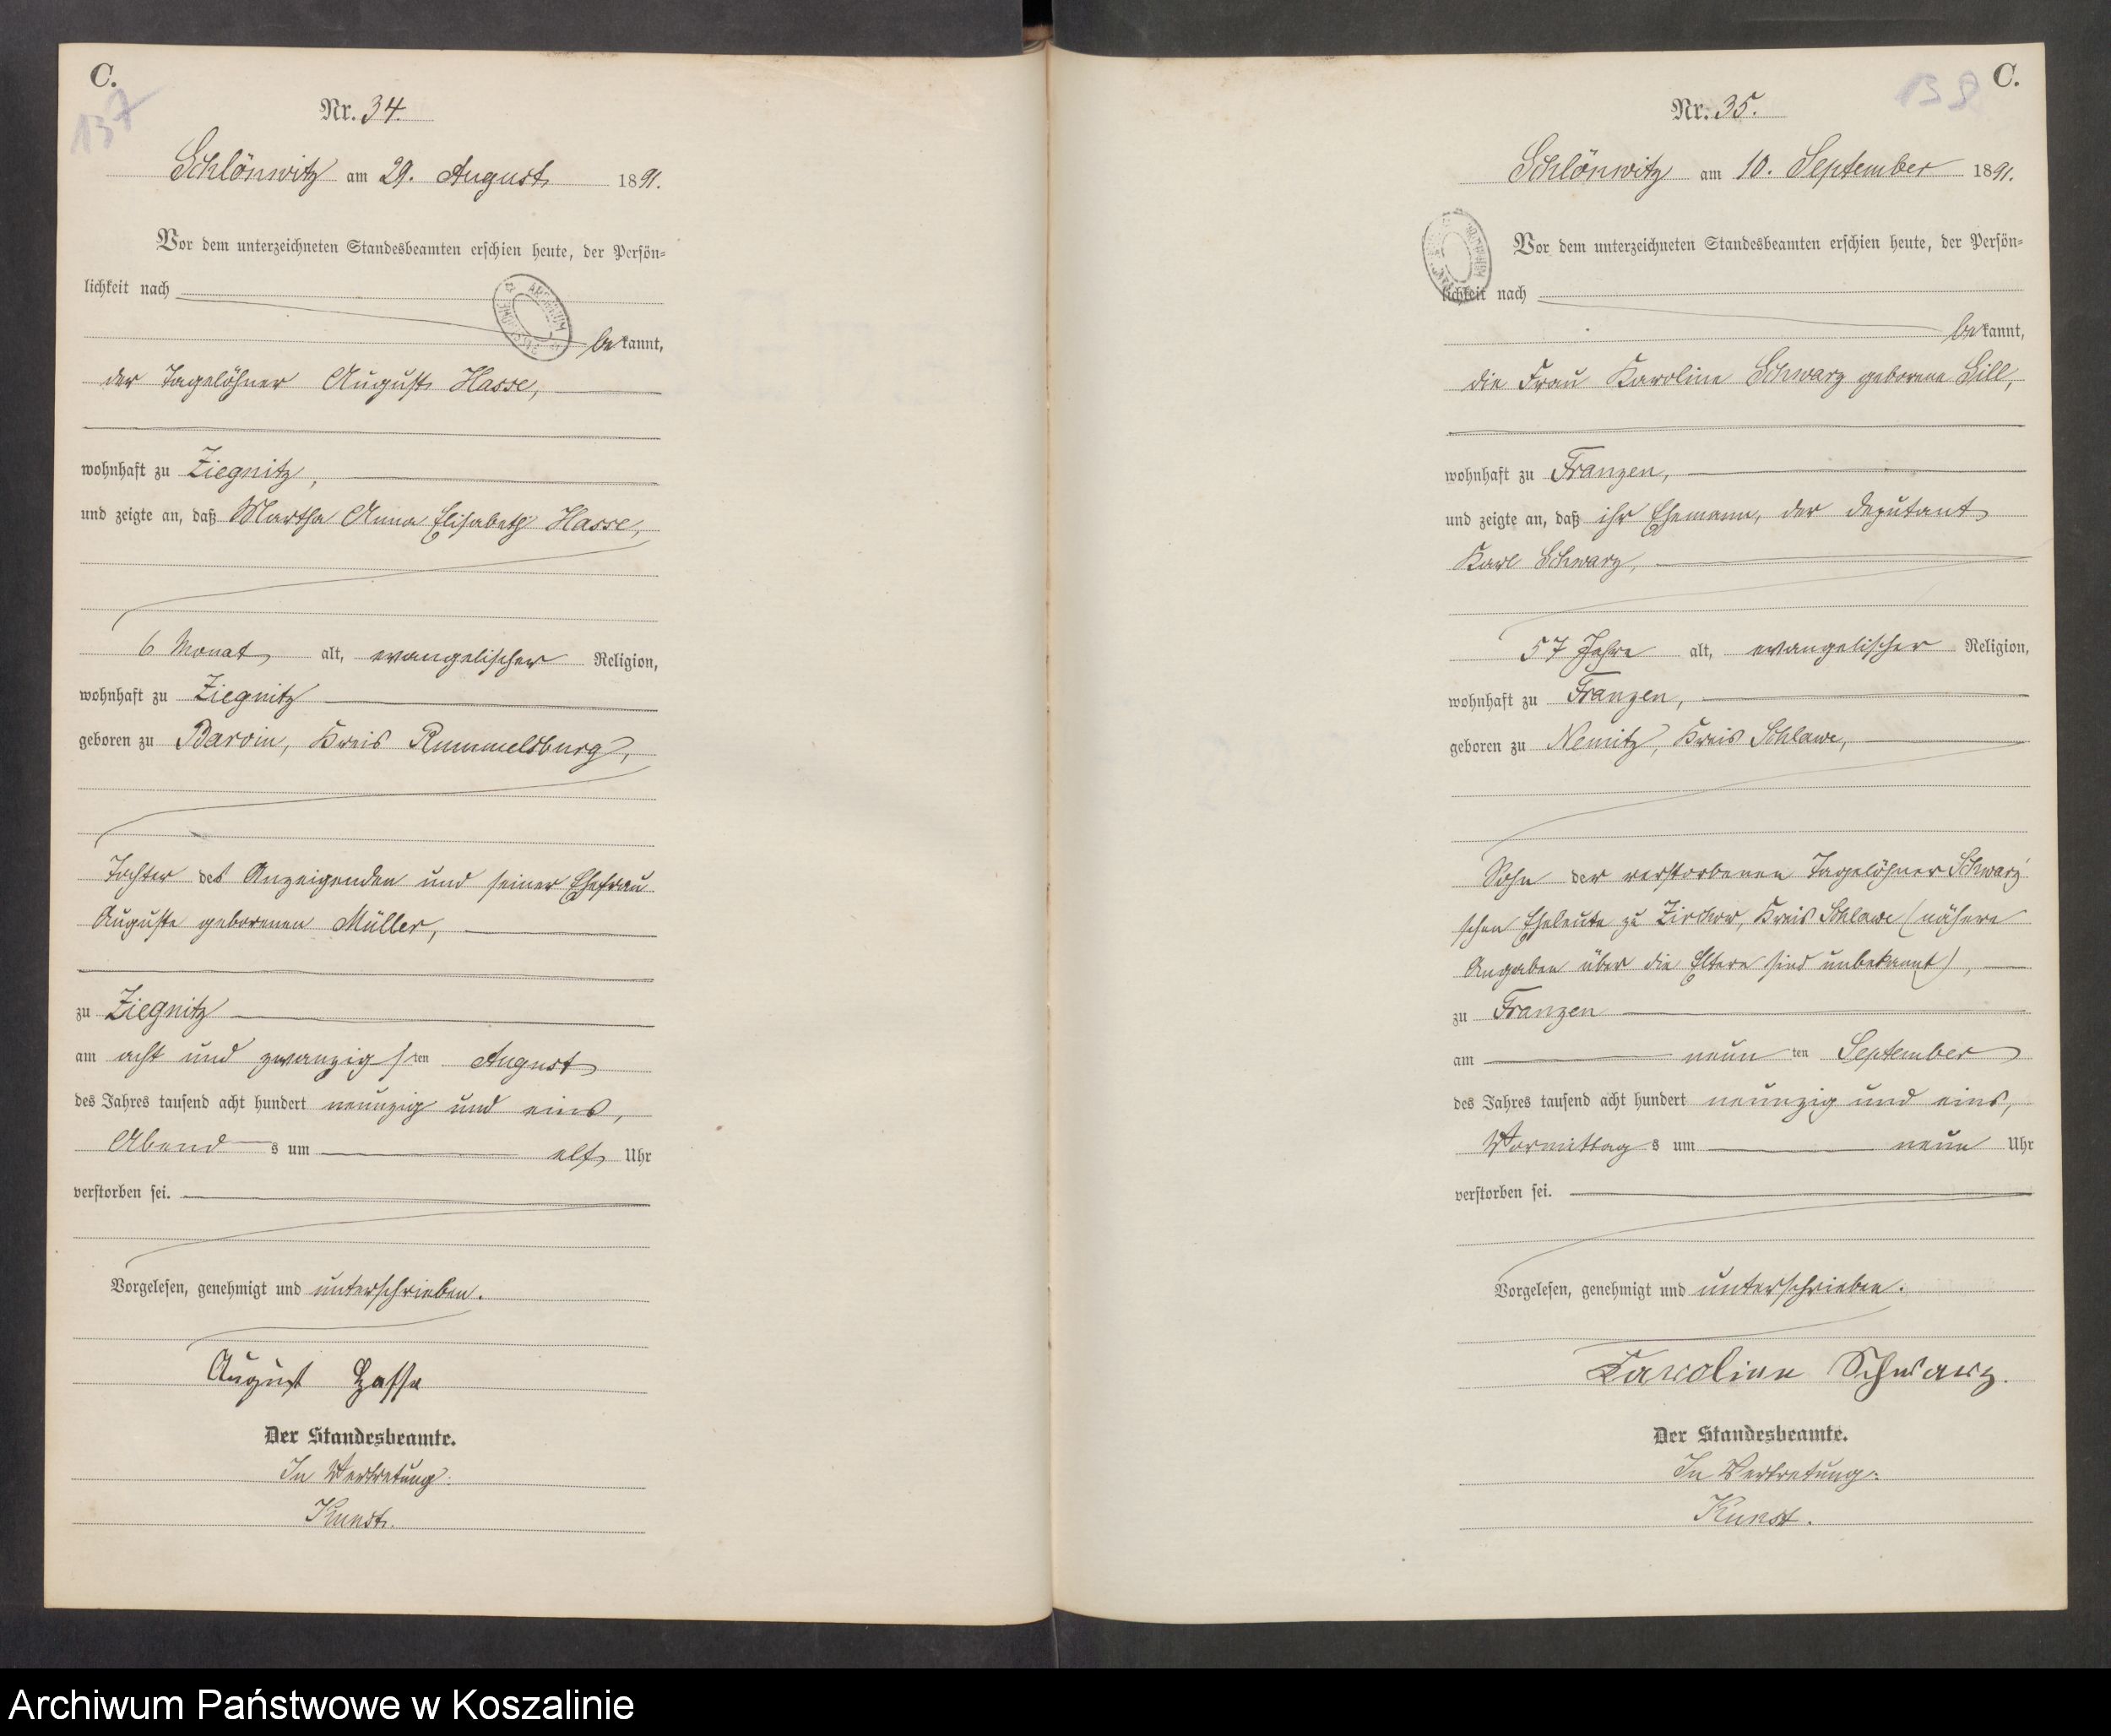 C.
137
Nr. 34.
Schlönwitz am 29. August 1891.
Vor dem unterzeichneten Standesbeamten erschien heute, der Persön-
lichkeit nach
bekannt,
der Tagelöhner August Hasse,
wohnhaft zu Ziegnitz,
und zeigte an, daß Martha Anna Elisabeth Hasse,
6 Monat alt, evangelischer Religion,
wohnhaft zu Ziegnitz
geboren zu Barvin, Kreis Rummelsburg,
Tochter des Anzeigenden und seiner Ehefrau
Auguste geborenen Müller,
zu Ziegnitz
am acht und zwanzigsten August
des Jahres tausend acht hundert neunzig und eins,
Abends um elf Uhr
verstorben sei.
Vorgelesen, genehmigt und unterschrieben.
August Hasse
Der Standesbeamte.
In Vertretung:
Kunst.
C.
138
Nr. 35.
Schlönwitz am 10. September 1891.
ARCHIWUM
Vor dem unterzeichneten Standesbeamten erschien heute, der Persön-
lichkeit nach
bekannt,
die Frau Karoline Schwarz geborene Sill,
wohnhaft zu Franzen,
und zeigte an, daß ihr Ehemann, der Deputant
Karl Schwarz,
57 Jahre alt, evangelischer Religion,
wohnhaft zu Franzen,
geboren zu Nemitz, Kreis Schlawe,
Sohn der verstorbenen Tagelöhner Schwarz'
schen Eheleute zu Zirchow, Kreis Schlawe (nähere
Angaben über die Eltern sind unbekannt),
zu Franzen
am neunten September
des Jahres tausend acht hundert neunzig und eins,
Vormittags um neun Uhr
verstorben sei.
Vorgelesen, genehmigt und unterschrieben.
Karoline Schwarz.
Der Standesbeamte.
In Vertretung:
Kunst.
Archiwum Państwowe w Koszalinie